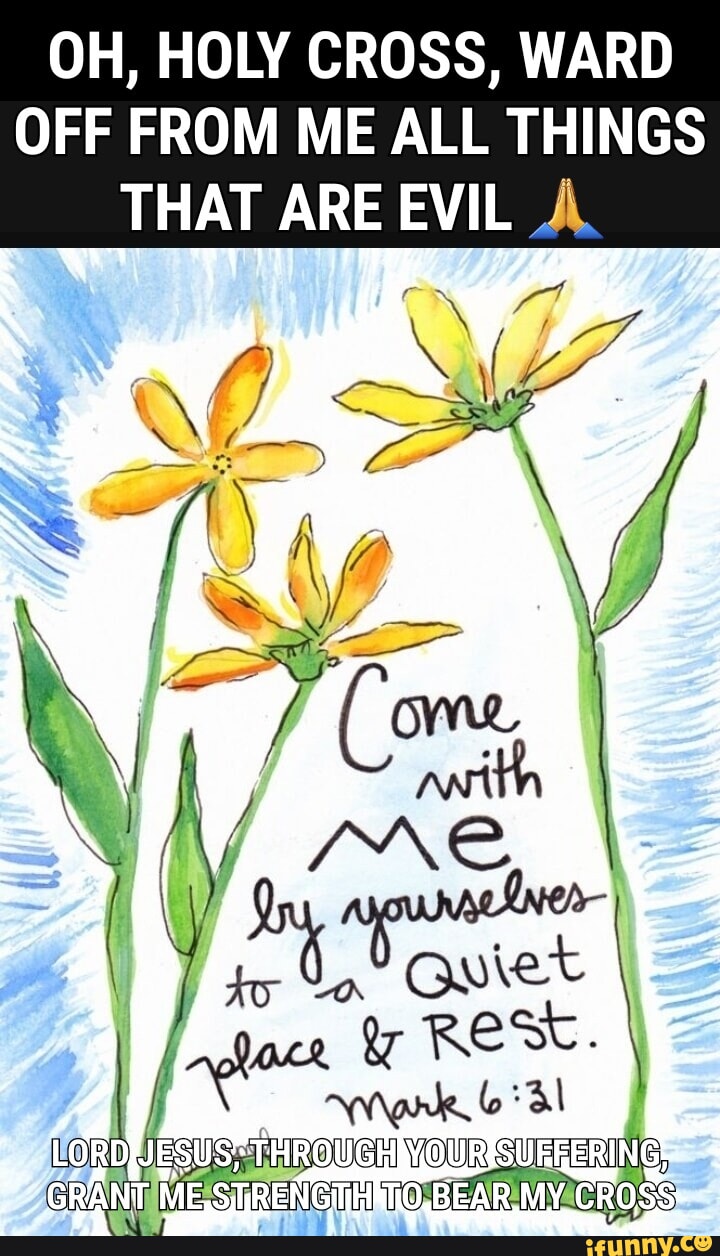 OH, HOLY CROSS, WARD
OFF FROM ME ALL THINGS
THAT ARE EVIL 🙏
Come
with
Me
by yourselves
to a Quiet
place & Rest.
Mark 6:31
LORD JESUS, THROUGH YOUR SUFFERING,
GRANT ME STRENGTH TO BEAR MY CROSS
ifunny.co